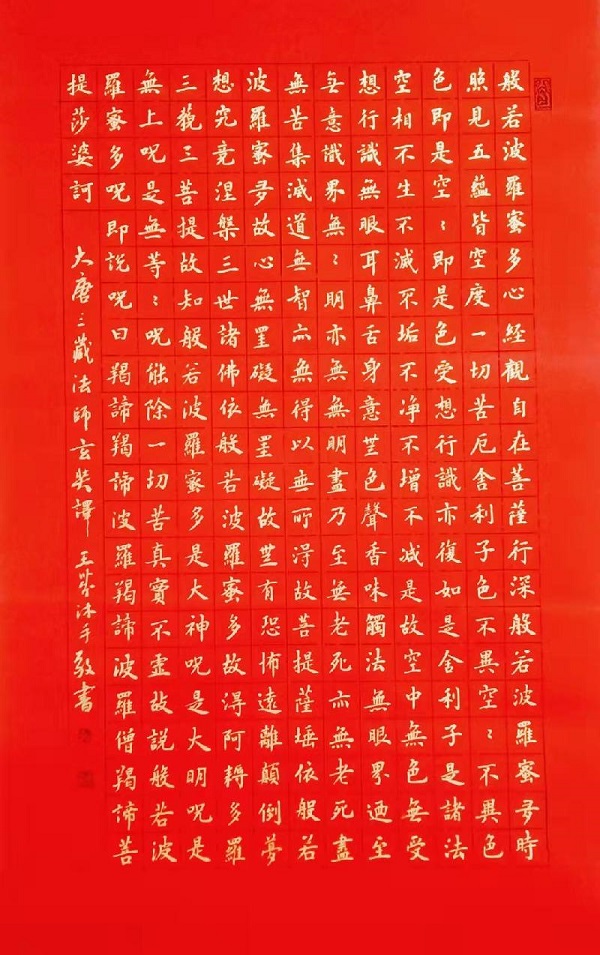 般若波羅蜜多心經觀自在菩薩行深般若波羅蜜多時
照見五蘊皆空度一切苦厄舍利子色不異空〻不異色
色即是空〻即是色受想行識亦復如是舍利子是諸法
空相不生不滅不垢不净不增不減是故空中無色無受
想行識無眼耳鼻舌身意無色聲香味觸法無眼界迺至
無意識界無〻明亦無無明盡乃至無老死亦無老死盡
無苦集滅道無智亦無得以無所得故菩提薩埵依般若
波羅蜜多故心無罣礙無罣礙故無有恐怖遠離顛倒夢
想究竟涅槃三世諸佛依般若波羅蜜多故得阿耨多羅
三藐三菩提故知般若波羅蜜多是大神呪是大明呪是
無上呪是無等〻呪能除一切苦真實不虛故說般若波
羅蜜多呪即說呪曰羯諦羯諦波羅羯諦波羅僧羯諦菩
提莎婆訶
大唐三藏法師玄奘譯 王 沐手敬書